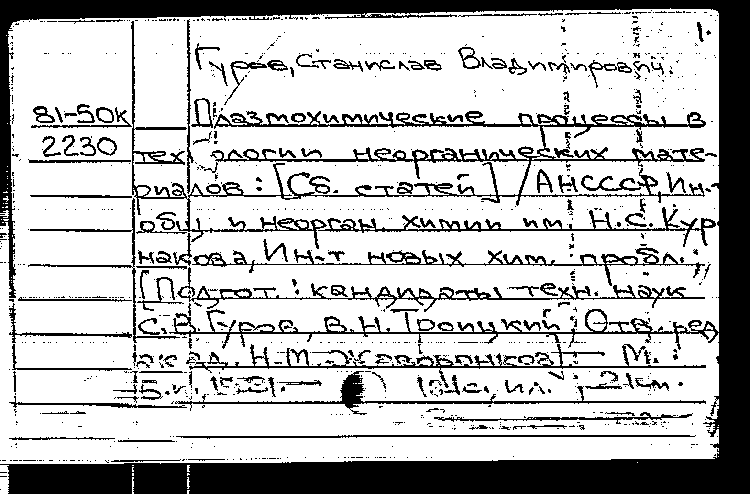 1.
Гуров, Станислав Владимирович.
81-50к Плазмохимические процессы в
2230 технологии неорганических мате-
риалов : [Сб. статей] / АНСССР, Ин-т
общ. и неорган. химии им. Н.С. Кур-
накова, Ин-т новых хим. пробл. ;
[Подгот. : кандидаты техн. наук
С.В. Гуров, В.Н. Троицкий ; Отв. ред.
акад. Н.М. Жаворонков]. — М. :
Б.и., ил. ; 21см.